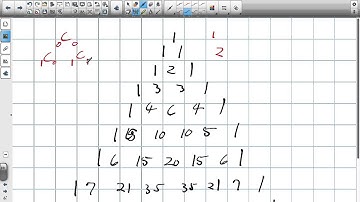 0C0 1 1
1C0 1C1 1 1 2
1 2 1
1 3 3 1
1 4 6 4 1
1 5 10 10 5 1
1 6 15 20 15 6 1
1 7 21 35 35 21 7 1